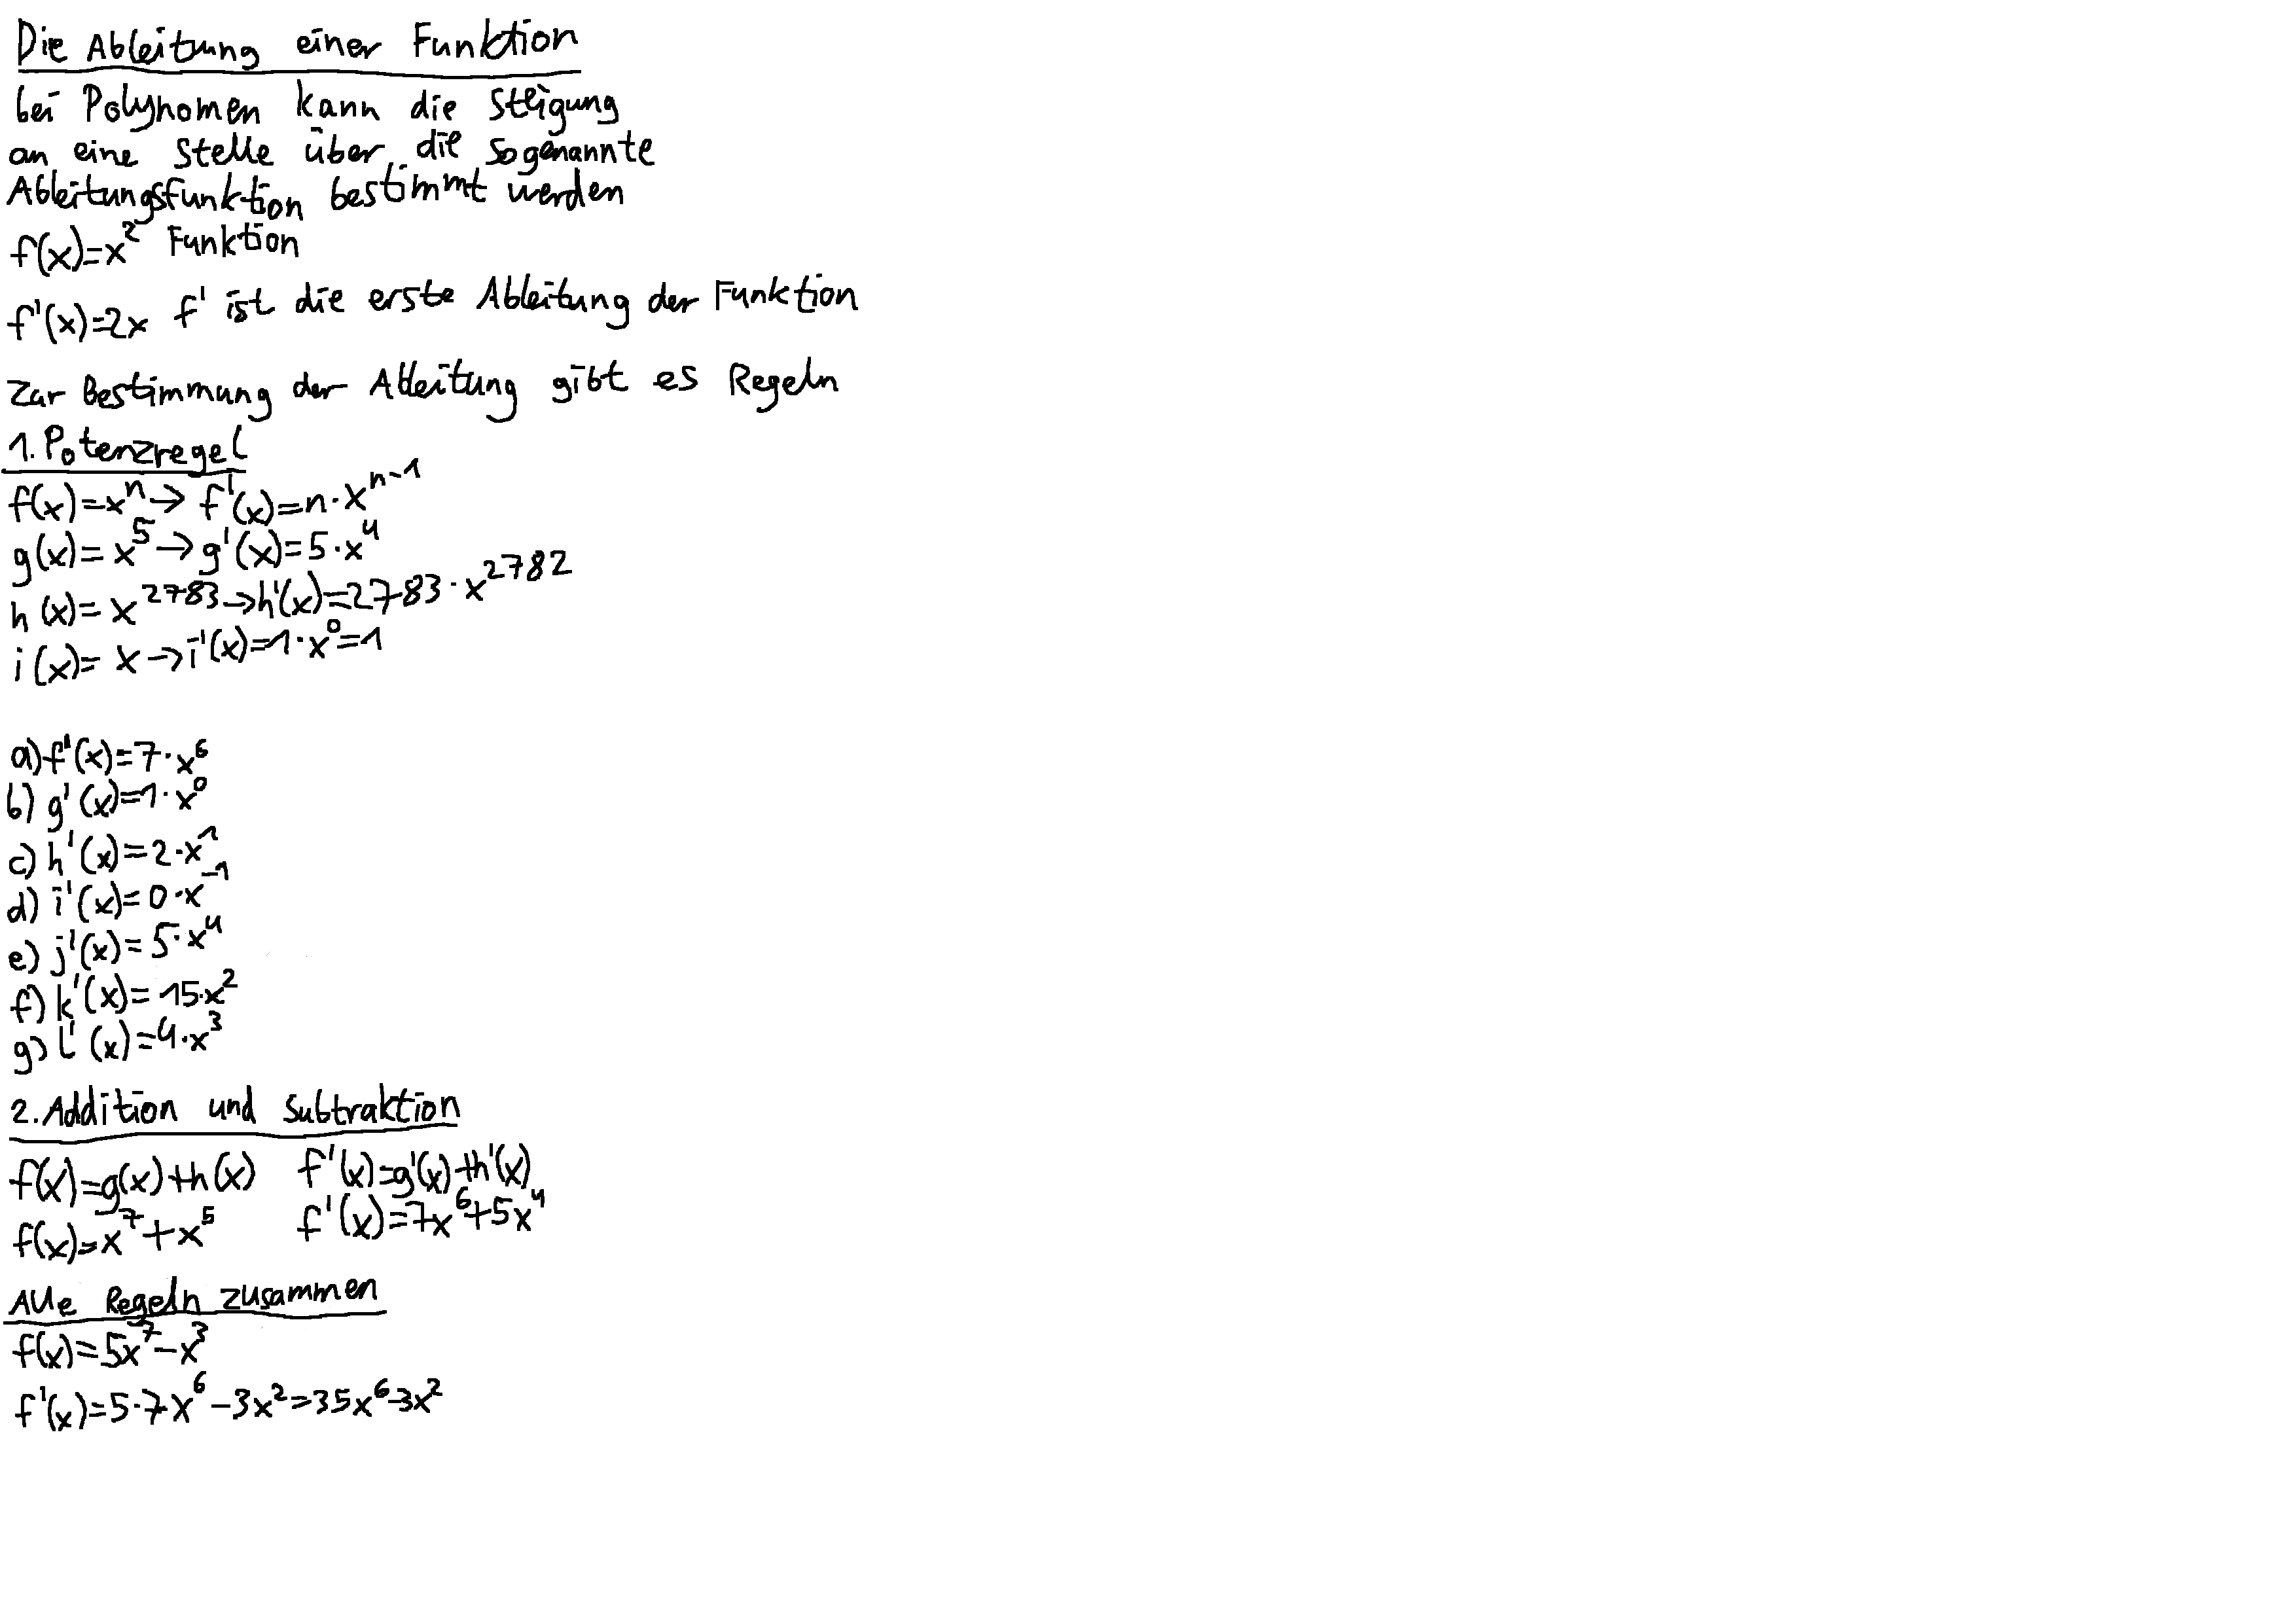 Die Ableitung einer Funktion
bei Polynomen kann die Steigung
an eine Stelle über die sogenannte
Ableitungsfunktion bestimmt werden
f(x)=x² Funktion
f'(x)=2x f' ist die erste Ableitung der Funktion
Zur Bestimmung der Ableitung gibt es Regeln
1. Potenzregel
f(x)=xⁿ→ f'(x)=n·xⁿ⁻¹
g(x)=x⁵→g'(x)=5·x⁴
h(x)=x²⁷⁸³→h'(x)=2783·x²⁷⁸²
i(x)=x→i'(x)=1·x⁰=1
a) f'(x)=7·x⁶
b) g'(x)=1·x⁰
c) h'(x)=2·x¹
d) i'(x)=0·x⁻¹
e) j'(x)=5·x⁴
f) k'(x)=15·x²
g) l'(x)=4·x³
2. Addition und Subtraktion
f(x)=g(x)+h(x) f'(x)=g'(x)+h'(x)
f(x)=x⁷+x⁵ f'(x)=7x⁶+5x⁴
Alle Regeln zusammen
f(x)=5x⁷-x³
f'(x)=5·7x⁶-3x²=35x⁶-3x²